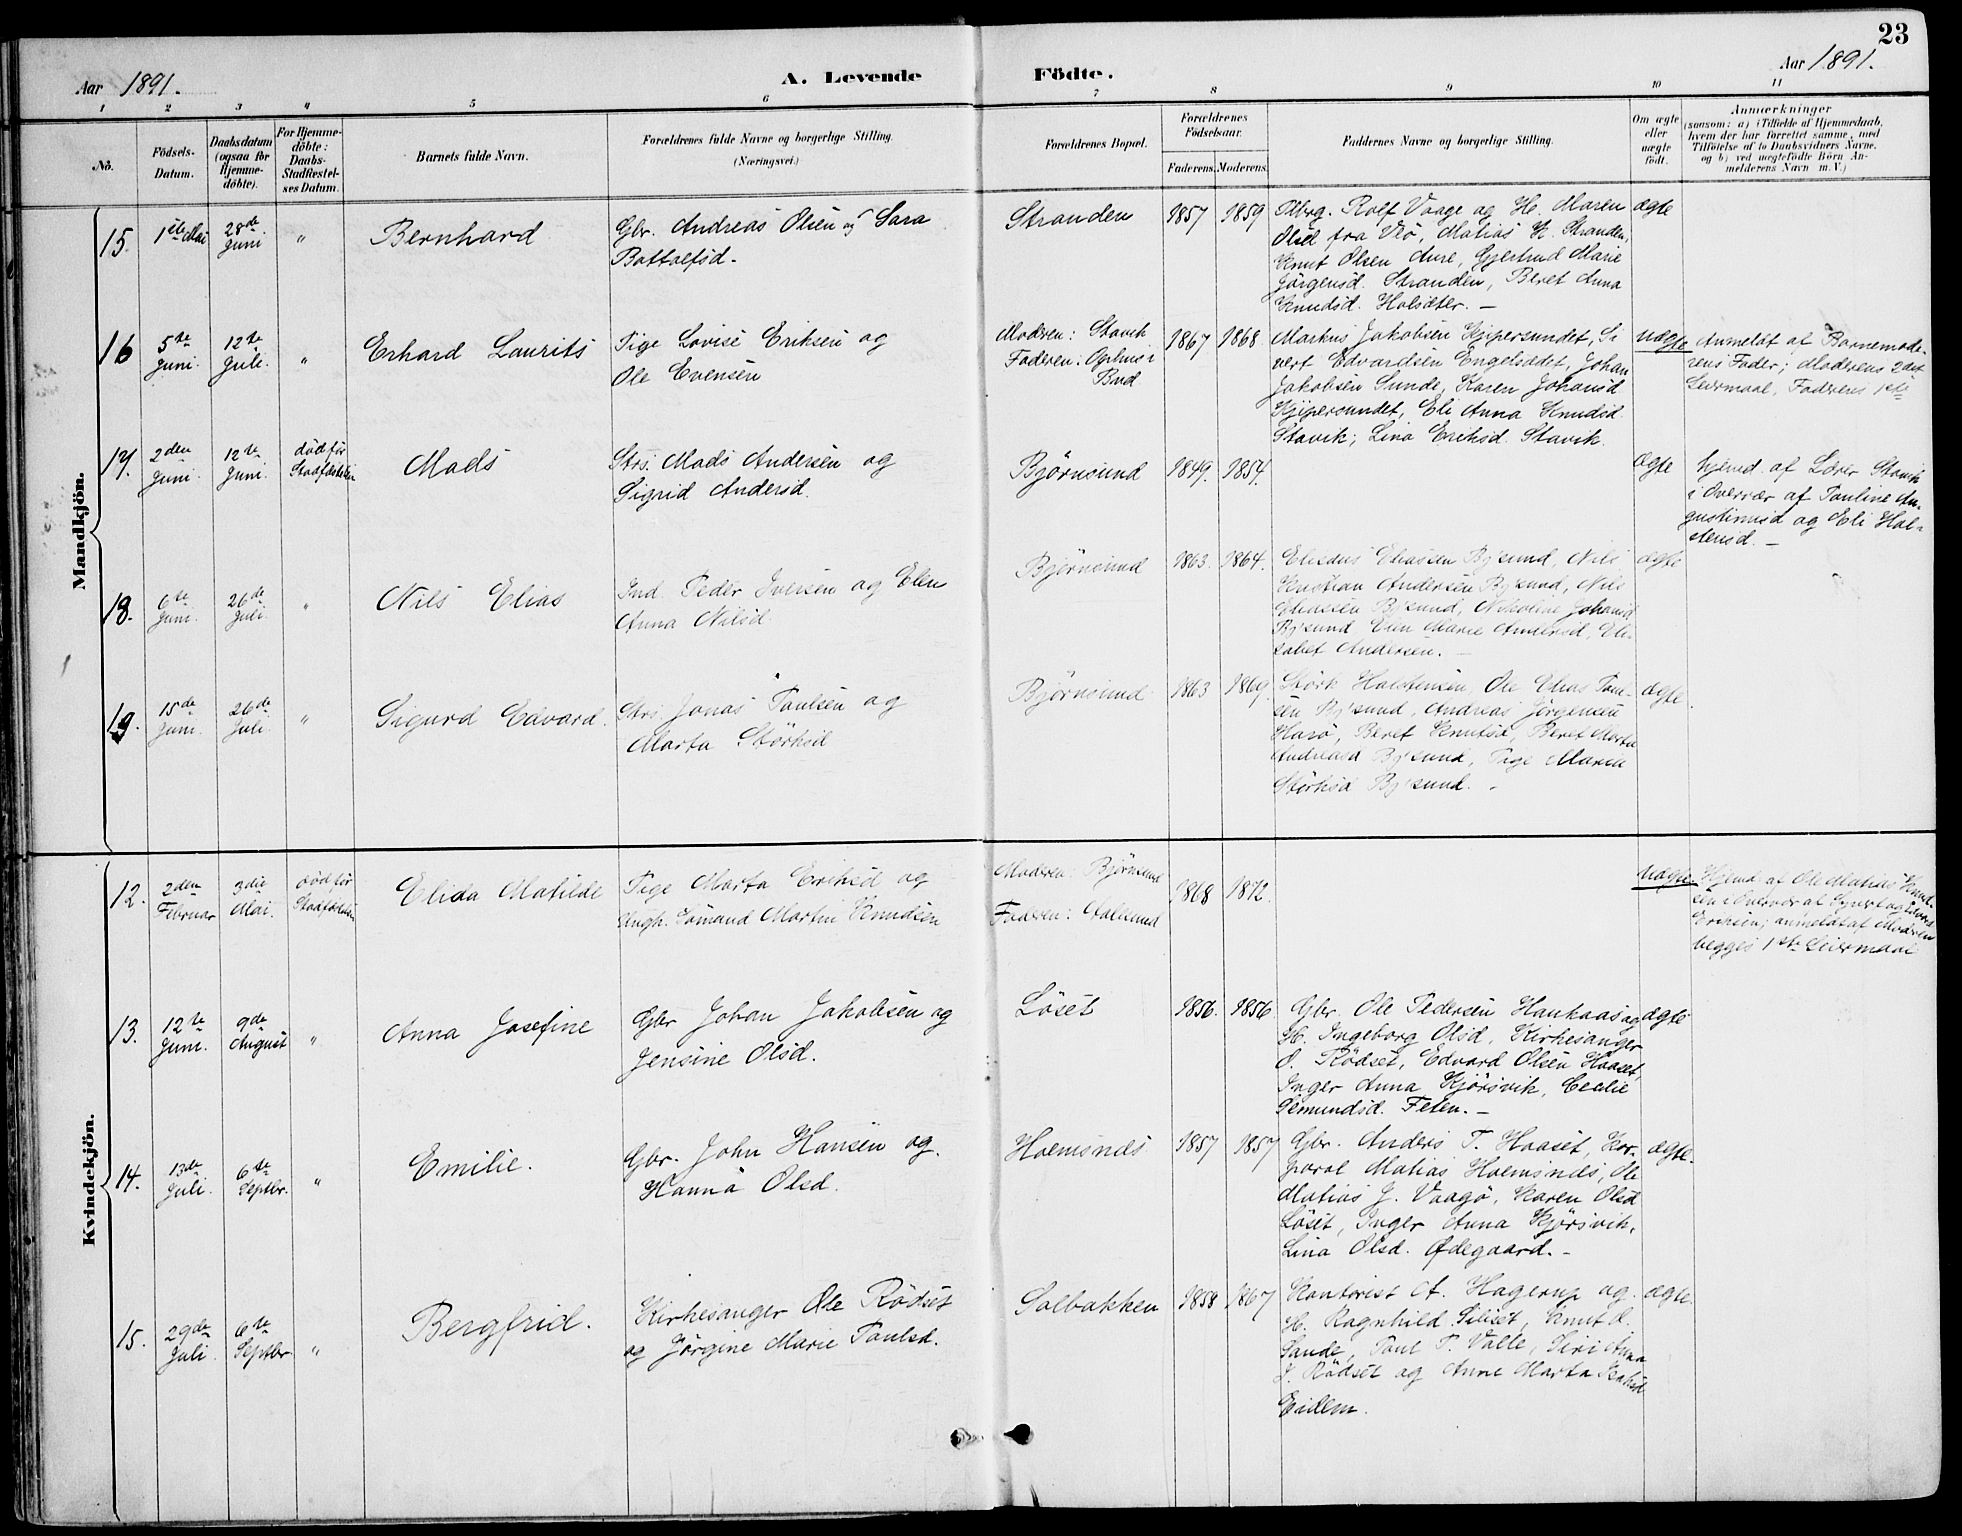 23
Aar 1891.
A. Levende Födte.
Aar 1891.
1 2 3 4 5 6 7 8 9 10 11
No.
Födsels-
Datum.
Daabsdatum
(ogsaa for
Hjemme-
döbte).
For Hjemme-
döbte:
Daabs-
Stadfæstel-
ses Datum.
Barnets fulde Navn.
Forældrenes fulde Navne og borgerlige Stilling.
(Næringsvei.)
Forældrenes Bopæl.
Forældrenes
Födselsaar.
Faderens. Moderens.
Faddernes Navne og borgerlige Stilling.
Om ægte
eller
uægte
födt.
Anmærkninger
(saasom: a) i Tilfælde af Hjemmedaab,
hvem der har forrettet samme, med
Tilföielse af to Daabsvidners Navne,
og b) ved uægtefödte Börn An-
melderens Navn m. V.)
Mandkjön.
15.
1ste Mai
28de
Juni
"
Bernhard
Gbr. Andreas Olsen og Sara
Bottolfsd.
Stranden
1857
1859
Rolf Vaage og H. Maren
Olsd fra Veö, Matias K. Stranden,
Knut Olsen Aure, Gjertrud Marie
Jørgensd. Stranden, Beret Anna
Knudsd. Holsæter. -
ægte
16
5te
Juni.
12te
Juli.
"
Erhard Laurits
Pige Lovise Eriksen og
Ole Evensen
Modren: Stavik
Faderen: Ophus i
Bud
1867
1868
Markus Jakobsen Kjipersundet, Si
vert Edvardsen Engelsædet, Johan
Jakobsen Sunde, Karen Johansd
Kjipersundet, Eli Anna Knudsd.
Stavik; Lina Eriksd. Stavik.
uægte
Anmeldt af Barnemode-
rens Fader; Moderens 2det
Leiermaal, Faderens 1ste
17.
2den
Juni.
12te
Juni.
död för
Stadfæstelsen
Mads
Strs. Mads Andersen og
Sigrid Andersd.
Björnsund
1849.
1854.
ægte
hjemd. af Lærer Stavik
i Overvær af Pauline Au-
gustinusd og Eli Hal-
stensd. -
18.
6te
Juni.
26de
Juli.
"
Nils Elias
Ind. Peder Iversen og Elen
Anna Nilsd.
Björnsund
1863.
1864.
Eliasen Bj'sund, Nils
Kristian Andersen Bj'sund, Nils
Eliassen Bj'sund, Nikoline Johansd
Bj'sund Elen Marie Andersd, Eli-
sabet Andersen. -
ægte
19.
15de
Juni.
26de
Juli.
"
Sigurd Edvard.
Strs. Jonas Paulsen og
Marta Störksd
Björnsund
1863
1869.
Störk Halstensen, Ole Elias Paul-
sen Bj'sund, Andreas Jörgensen
Harö, Beret Knutsd, Beret Marta
Andreasd Bj'sund, Pige Maren
Störksd Bj'sund. -
ægte.
Kvindekjön.
12.
2den
Februar
3die
Mai.
död för
Stadfæstelsen
Elida Matilde
Pige Marta Eriksd og
Ungk. Sömand Martin Knudsen
Modren: Björnsund
Fadren: Aalesund
1868
1872.
uægte
Hjemd. af Ole Matias Knud-
sen i Overvær af og Edvard
Eriksen; anmeldt af Modren
begges 1ste Leiermaal
13.
12te
Juni.
9de
August
"
Anna Josefine
Gbr Johan Jakobsen og
Jensine Olsd.
Löset
1856.
1856.
Gbr. Ole Pedersen Haukaas og
H. Ingeborg Olsd, Kirkesanger
O. Rödset, Edvard Olsen Haaset,
Inger Anna Kjörsvik, Cecilie
Semundsd. Feten. -
ægte
14.
13de
Juli.
6te
Septbr.
"
Emilie.
Gbr. John Hansen og
Hanna Olsd.
Holmsnes
1857
1857
Gbr. Anders T. Haaset, Kor-
poral Matias Holmsnes, Ole
Matias J. Vaagö, Karen Olsd
Löset, Inger Anna Kjörsvik,
Lina Olsd. Ødegaard. -
ægte.
15.
29de
Juli.
6te
Septbr
"
Bergfrid.
Kirkesanger Ole Rödset
og Jörgine Marie Paulsd.
Solbakken
1858
1867
Kontorist A. Hagerup og
H. Ragnhild Silset, Knut O.
Sande, Paul P. Valle, Siri Anna
J. Rödset og Anne Marta Isaksd
Eidem.
ægte.